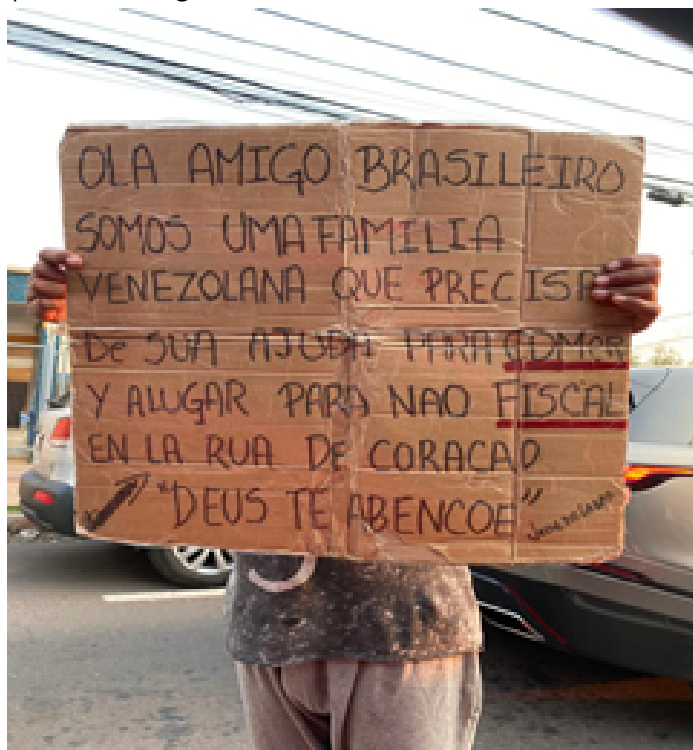 OLA AMIGO BRASILEIRO
SOMOS UMA FAMILIA
VENEZOLANA QUE PRECISA
De SUA AJUDA PARA COMER
Y ALUGAR PARA NAO FISCAL
EN LA RUA DE CORACAO
"DEUS TE ABENCOE"